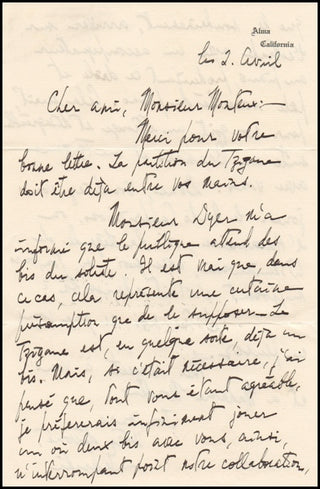 Alma
California
les 2. Avril
Cher ami, Monsieur Monteux:—
Merci pour votre
bonne lettre. La partition du Tzigane
doit être déja entre vos mains.
Monsieur Dyer m'a
informé que le publique attend des
bis du soliste. Il est vrai que, dans
ce cas, cela représente une certaine
présomption que de le supposer— Le
Tzigane est, en quelque sorte, déja un
bis. Mais, si c'était nécessaire, j'ai
pensé que, tout vous étant agréable,
je préférerais infiniment jouer
un où deux bis avec vous, ainsi,
n'interrompant point notre collaboration,